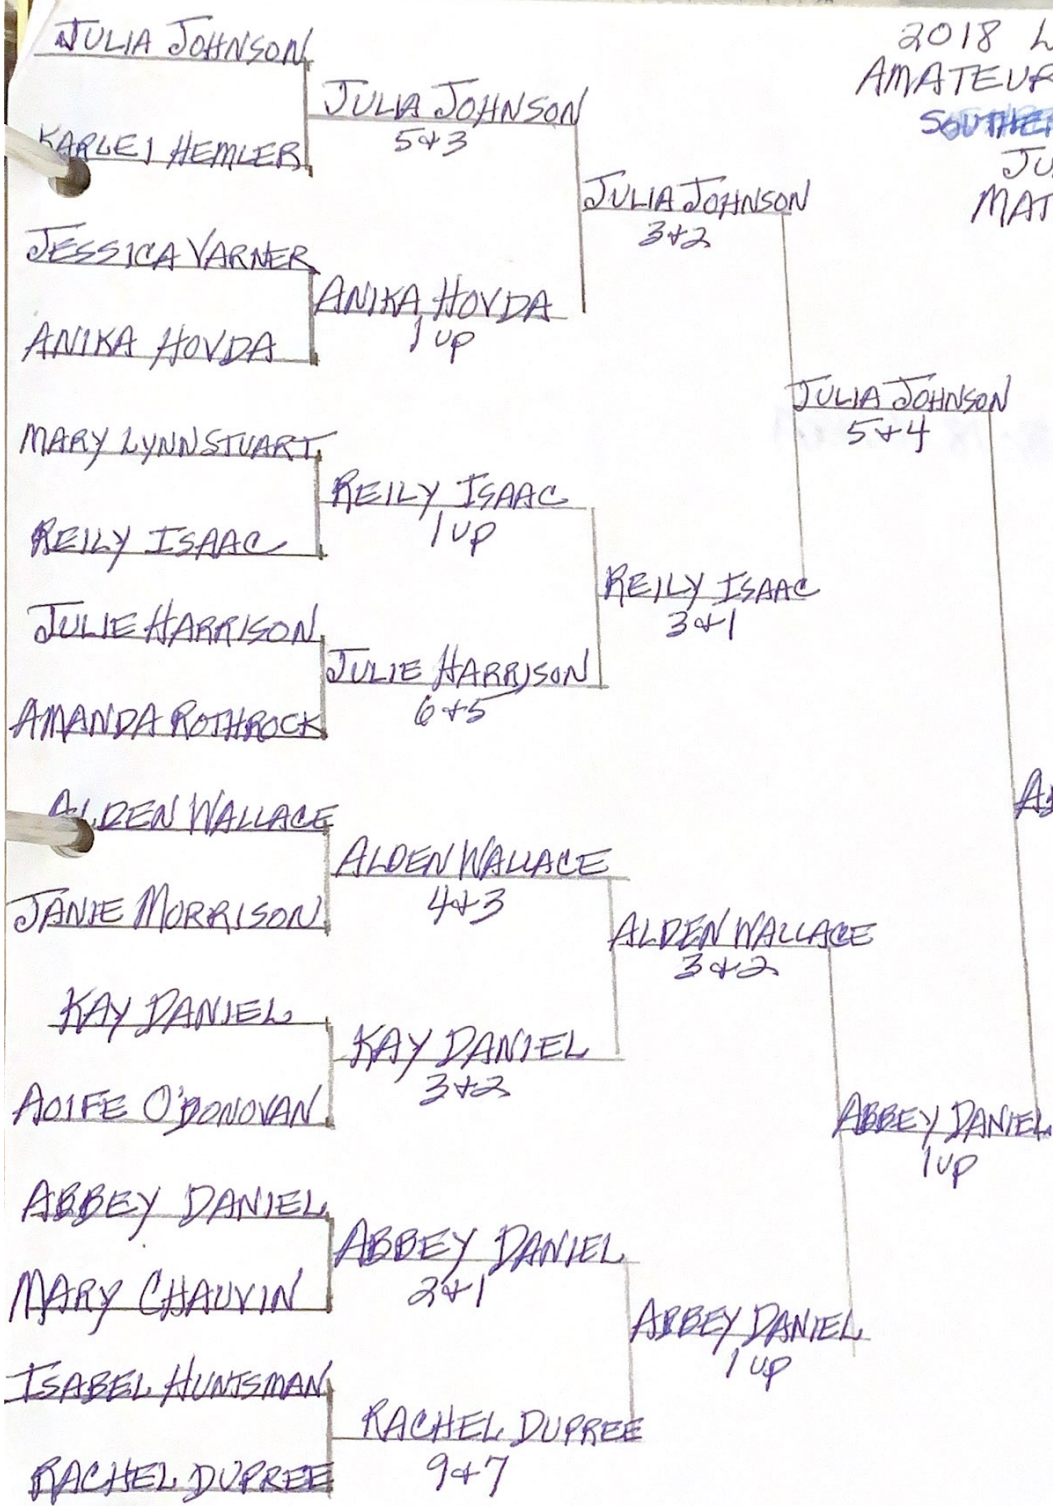 2018 L
AMATEUR
SOUTHER
JU
MAT
JULIA JOHNSON
KARLEI HEMLER
JESSICA VARNER
ANIKA HOVDA
MARY LYNN STUART
REILY ISAAC
JULIE HARRISON
AMANDA ROTHROCK
ALDEN WALLACE
JANIE MORRISON
KAY DANIEL
AOIFE O'DONOVAN
ABBEY DANIEL
MARY CHAUVIN
ISABEL HUNTSMAN
RACHEL DUPREE
JULIA JOHNSON
5&3
ANIKA HOVDA
1 UP
REILY ISAAC
1 UP
JULIE HARRISON
6&5
ALDEN WALLACE
4&3
KAY DANIEL
3&2
ABBEY DANIEL
2&1
RACHEL DUPREE
9&7
JULIA JOHNSON
3&2
REILY ISAAC
3&1
ALDEN WALLACE
3&2
ABBEY DANIEL
1 UP
JULIA JOHNSON
5&4
ABBEY DANIEL
1 UP
AB